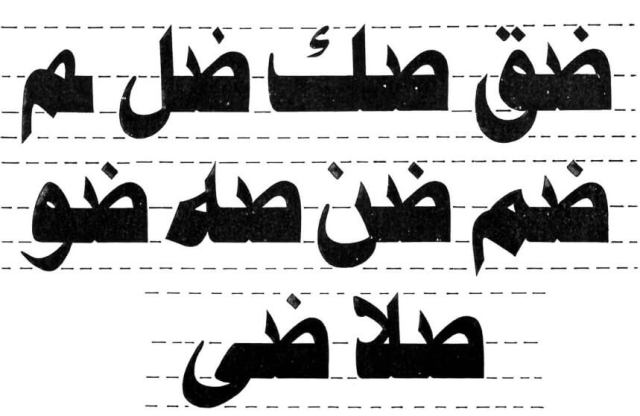 ضق صك ضل م
ضم ضن صه ضو
صلا ضى